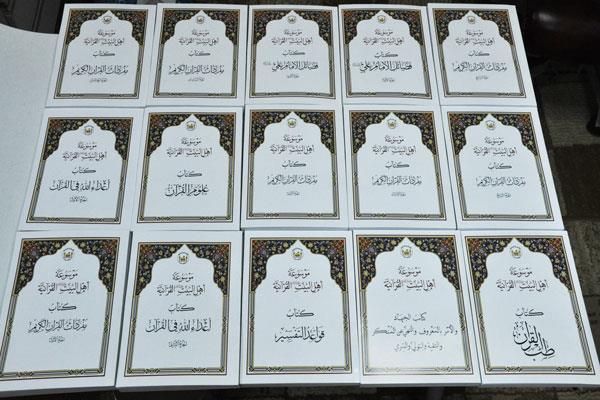 موسوعة
أهل البيت القرآنية
كتاب
مفردات القرآن الكريم
موسوعة
أهل البيت القرآنية
كتاب
فضائل الإمام علي
موسوعة
أهل البيت القرآنية
كتاب
فضائل الإمام علي
موسوعة
أهل البيت القرآنية
كتاب
مفردات القرآن الكريم
موسوعة
أهل البيت القرآنية
كتاب
مفردات القرآن الكريم
موسوعة
أهل البيت القرآنية
كتاب
مفردات القرآن الكريم
موسوعة
أهل البيت القرآنية
كتاب
مفردات القرآن الكريم
موسوعة
أهل البيت القرآنية
كتاب
مفردات القرآن الكريم
موسوعة
أهل البيت القرآنية
كتاب
علوم القرآن
موسوعة
أهل البيت القرآنية
كتاب
أعداء الله في القرآن
موسوعة
أهل البيت القرآنية
كتاب
طب القرآن
موسوعة
أهل البيت القرآنية
كتاب الجهاد
والأمر بالمعروف والنهي عن المنكر
والتقية والتولي والتبري
موسوعة
أهل البيت القرآنية
كتاب
قواعد التفسير
موسوعة
أهل البيت القرآنية
كتاب
أعداء الله في القرآن
موسوعة
أهل البيت القرآنية
كتاب
مفردات القرآن الكريم